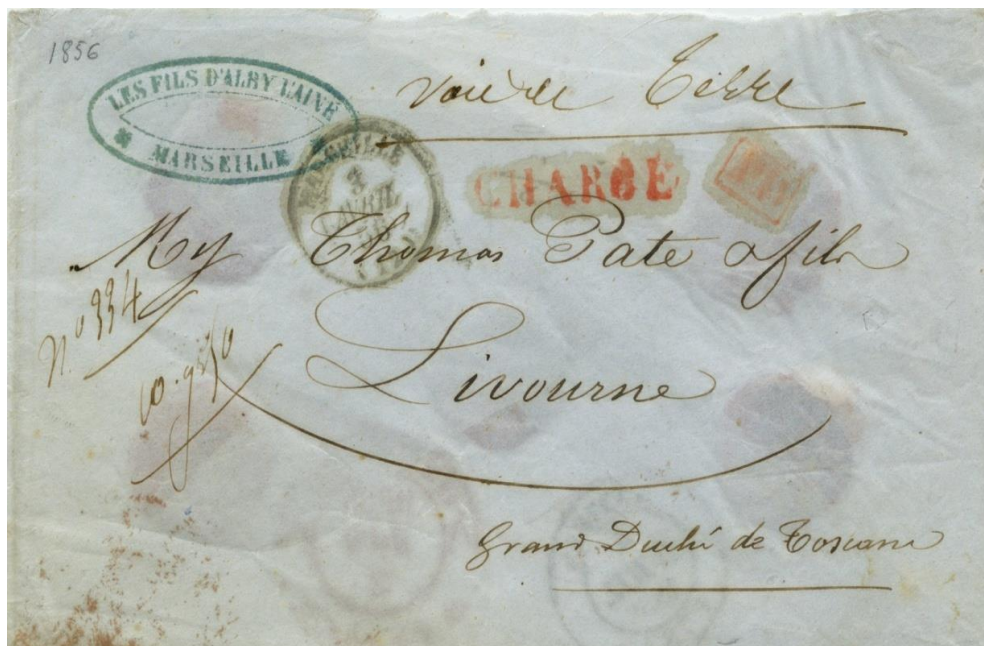 1856
LES FILS D'ALBY L'AINÉ
MARSEILLE
voie de Terre
MARSEILLE
3
AVRIL
CHARGÉ
PD
Mrs Thomas Pate & fils
N° 334
Livourne
Grand Duché de Toscane